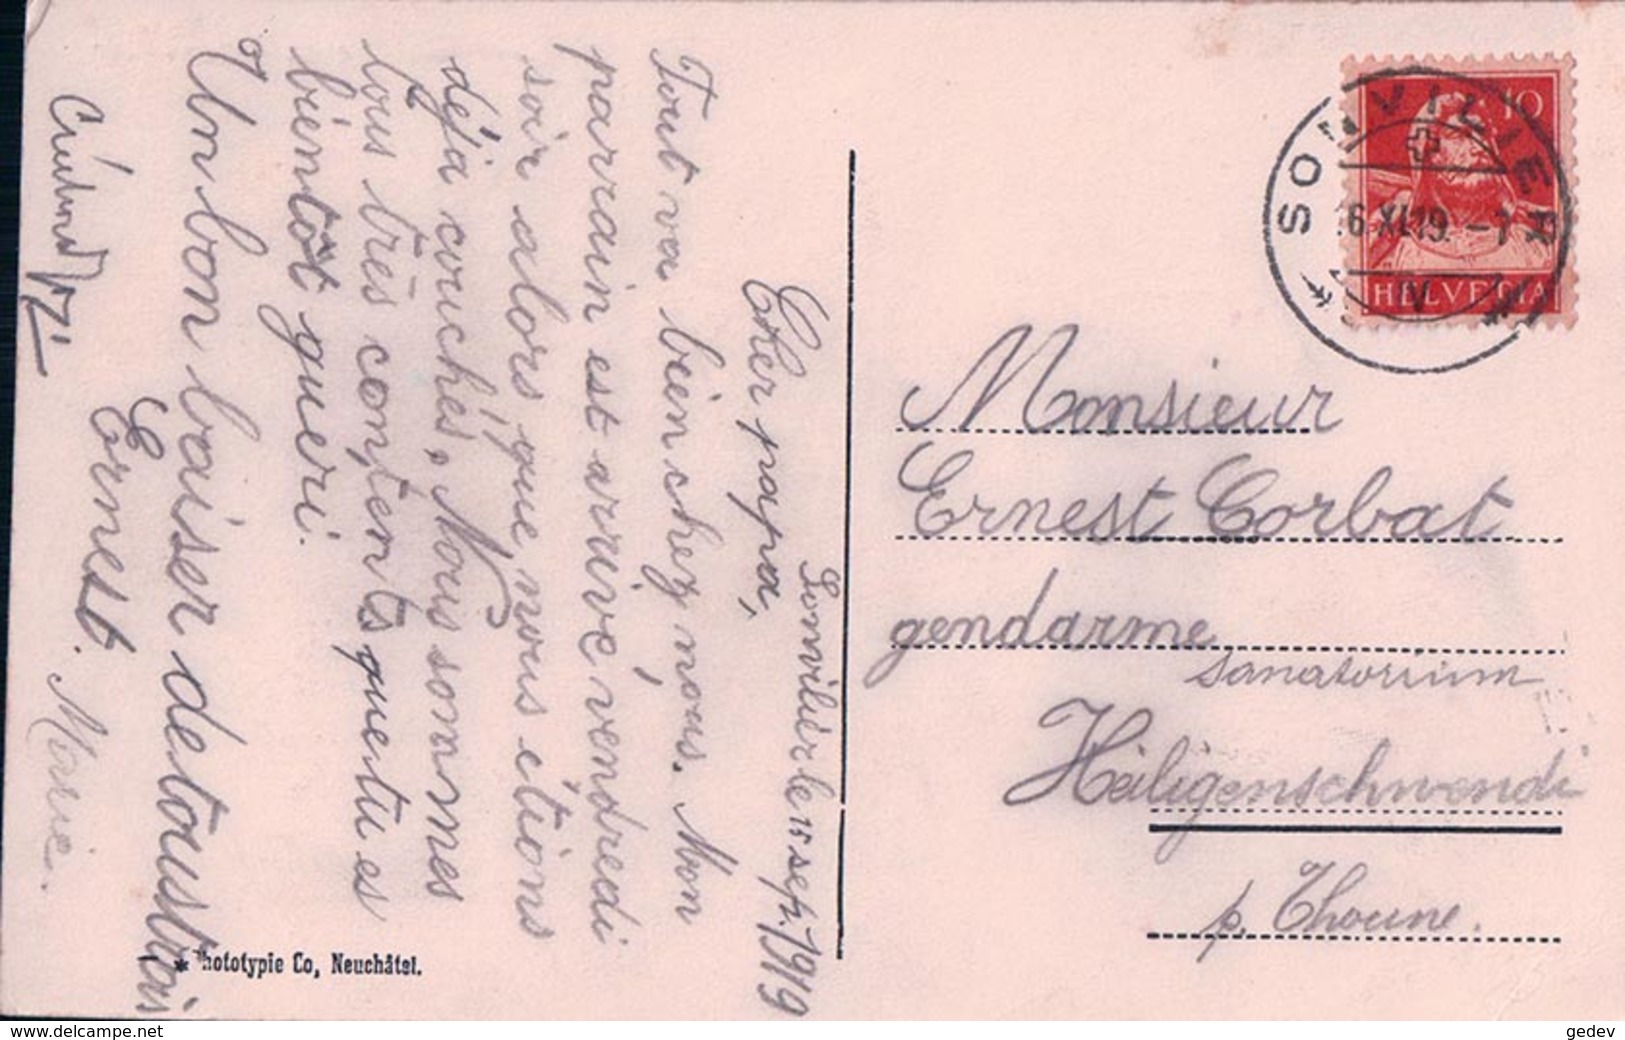 Sonvilier le 15 sept. 1919
Cher papa,
Tout va bien chez nous. Mon
parrain est arrivé vendredi
soir alors que nous étions
déjà couchés. Nous sommes
tous très contents que tu es
bientôt gueri.
Un bon baiser de tous trois
Ernest. Marie.
* Phototypie Co, Neuchâtel.
SONVILIER
16.XI.19. -7
IV
10
HELVETIA
Monsieur
Ernest Corbat
gendarme
sanatorium
Heiligenschwendi
p. Thoune.
www.delcampe.net
gedev